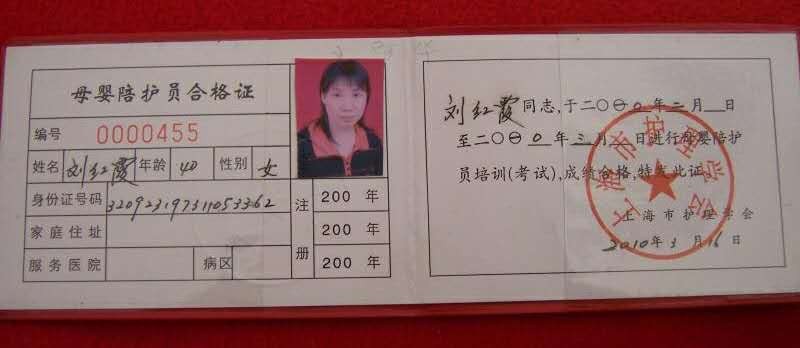 母婴陪护员合格证
编号 0000455
姓名 刘红霞 年龄 40 性别 女
身份证号码 320923197311053362
家庭住址
服务医院 病区
注册
200 年
200 年
200 年
刘红霞同志,于二〇一0年二月 日
至二〇一0年三月 日进行母婴陪护
员培训(考试),成绩合格,特发此证。
上海市护理学会
上海市护理学会
2010年3月16日